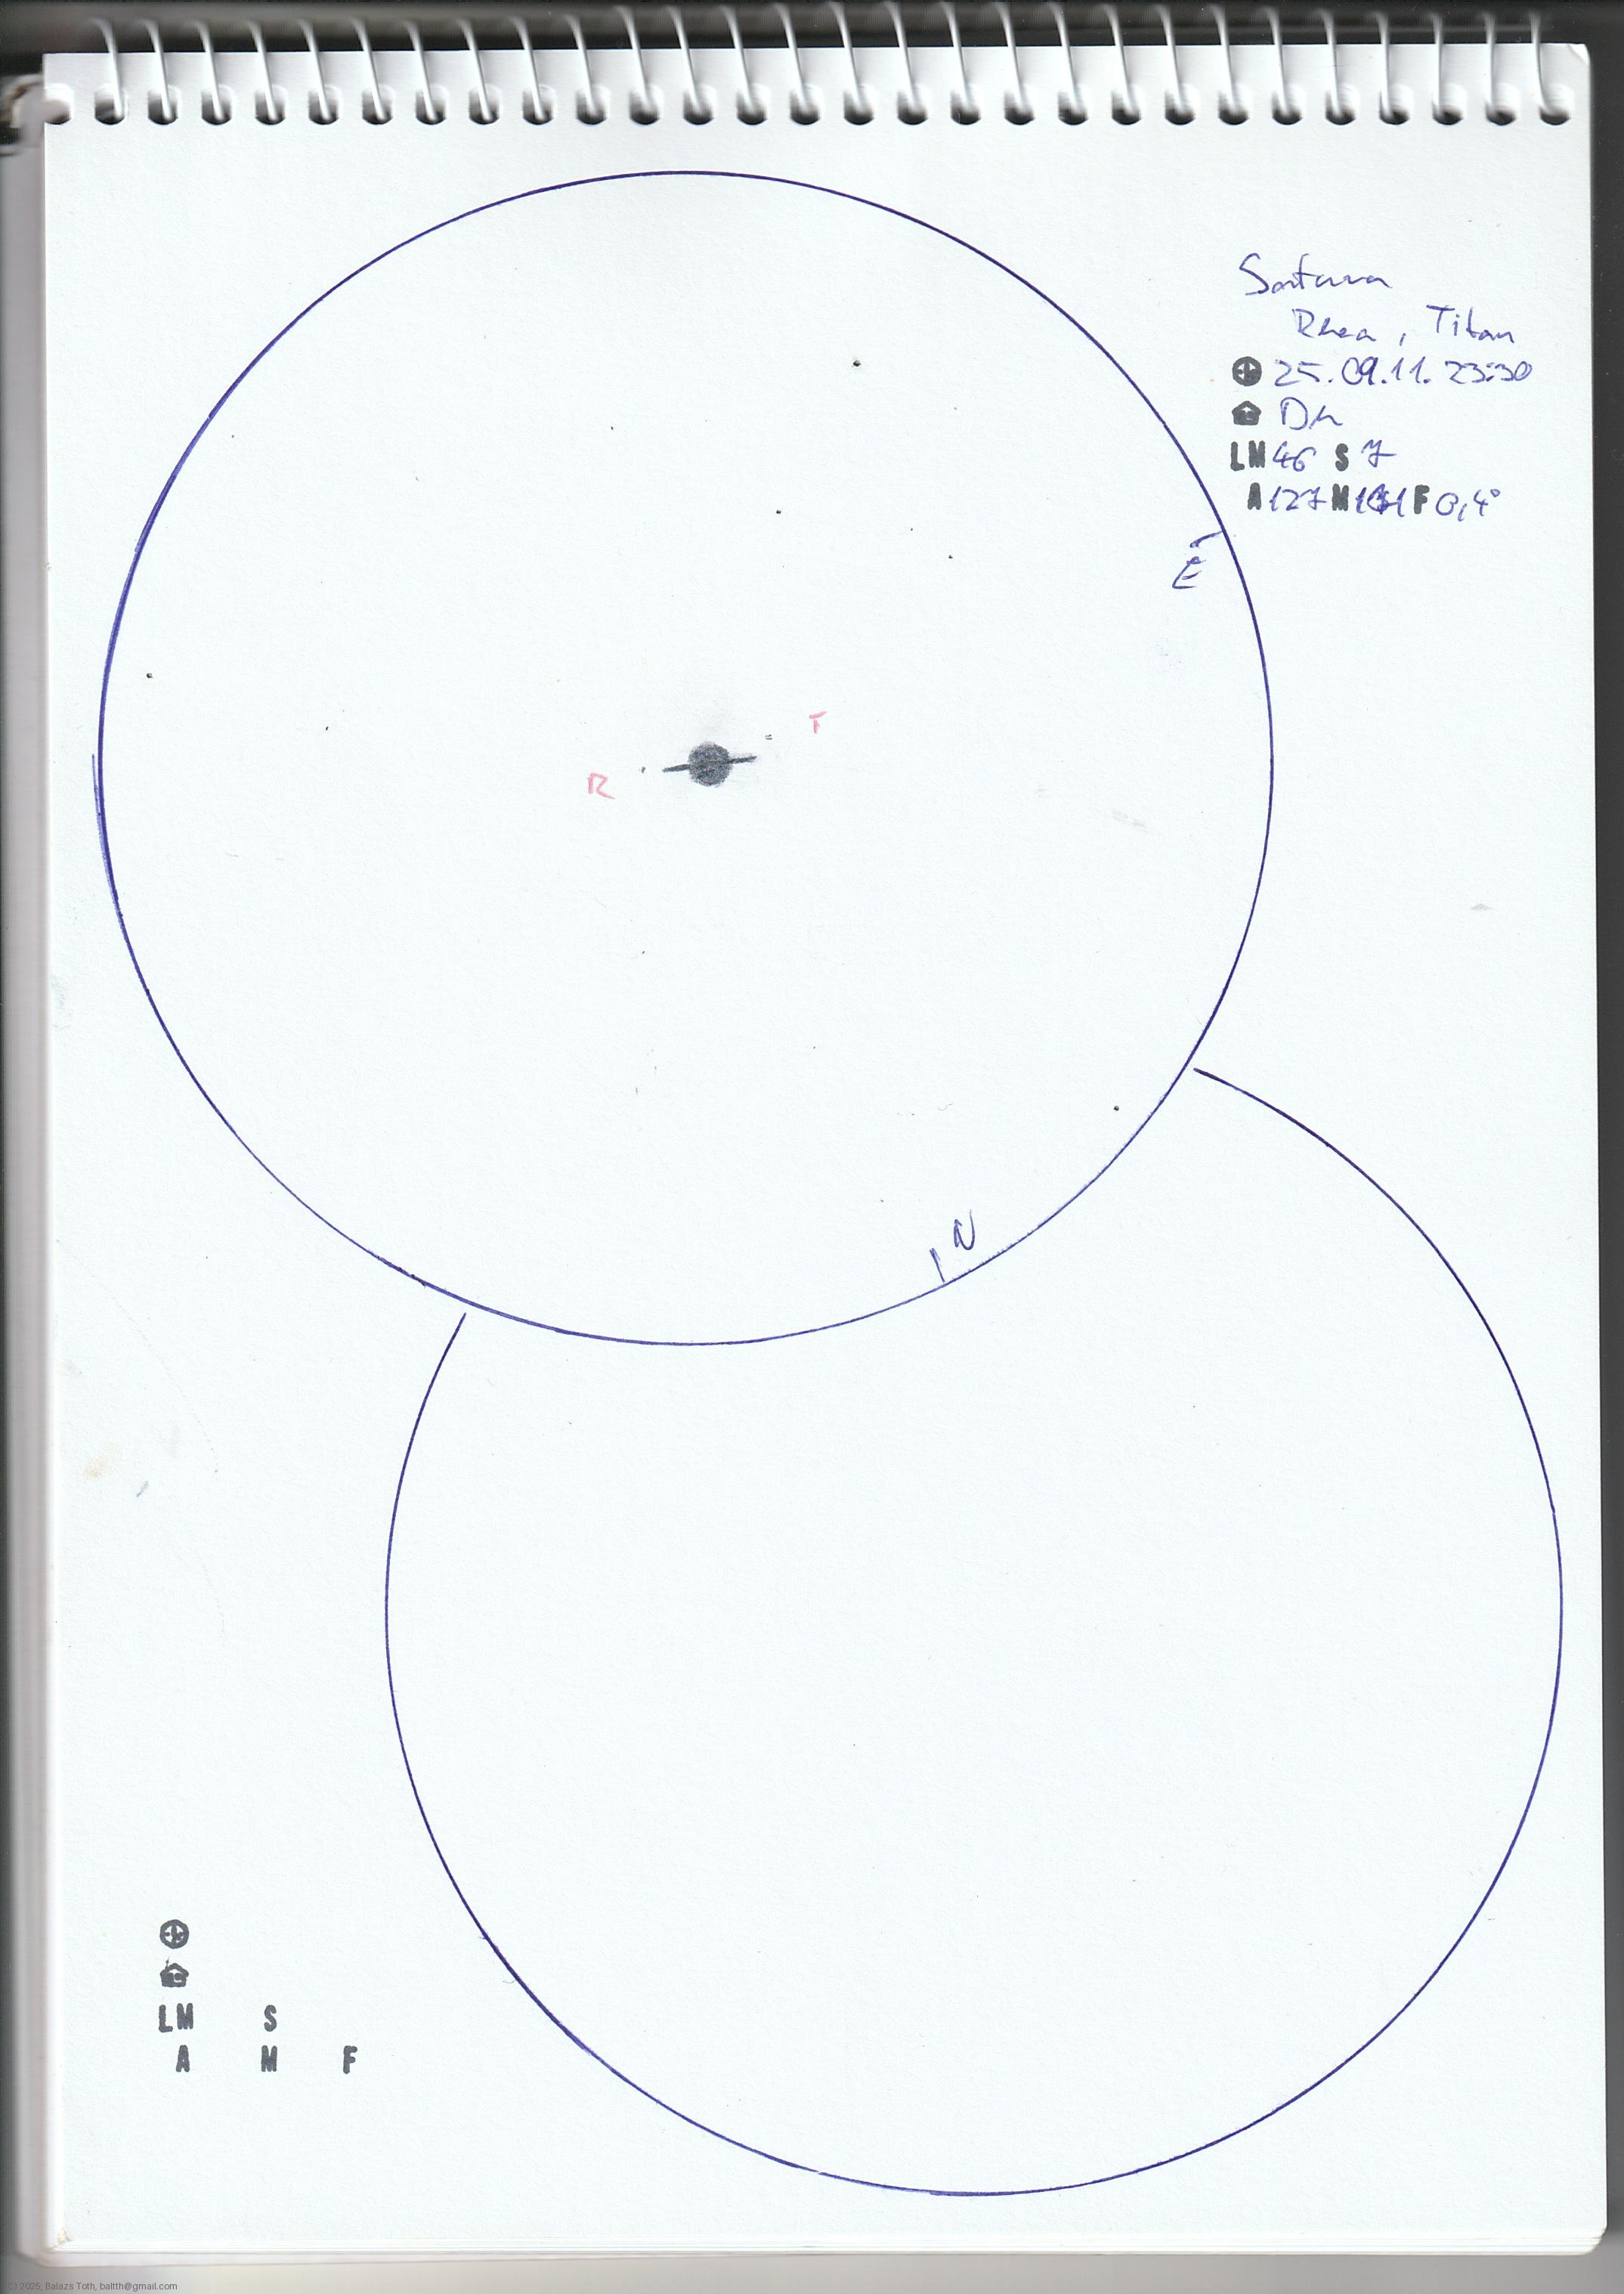 Saturn
Rhea, Titan
25.09.11. 23:30
Dk
LM 46 S 7
A 127 M F 0,4°
E
T
R
N
LM S
A M F
© 2025, Balazs Toth, baltth@gmail.com